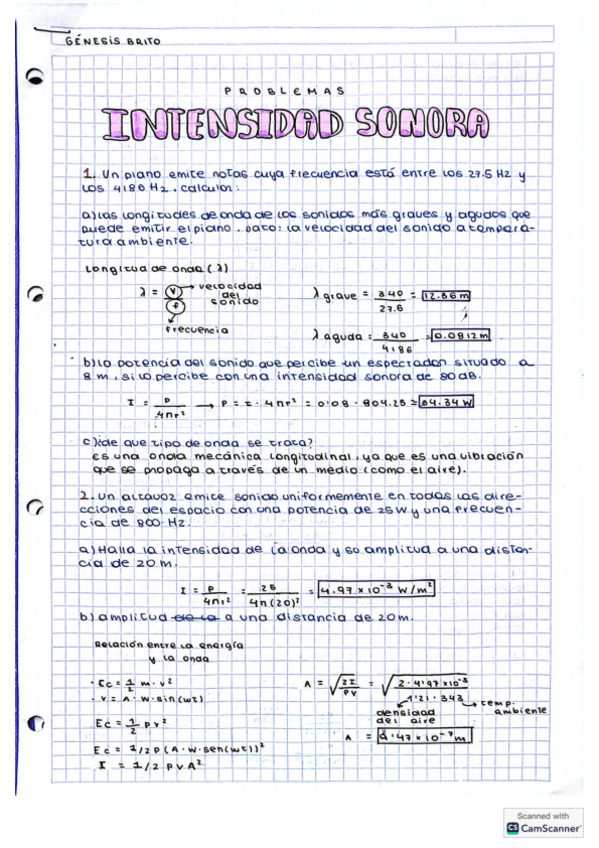 GÉNESIS BRITO
PROBLEMAS
INTENSIDAD SONORA
1. Un piano emite notas cuya frecuencia está entre los 27.5 Hz y
los 4186 Hz. calcular:
a) las longitudes de onda de los sonidos más graves y agudos que
puede emitir el piano. Dato: la velocidad del sonido a tempera-
tura ambiente.
Longitud de onda (λ)
λ = v/f → velocidad del sonido
frecuencia
λ grave = 340/27.5 = 12.36 m
λ aguda = 340/4186 = 0.0812 m
b) la potencia del sonido que percibe un espectador situado a
8 m, si lo percibe con una intensidad sonora de 80 dB.
I = P/4πr² → P = I · 4πr² = 0'08 · 804.25 = 64.34 W
c) ¿de que tipo de onda se trata?
Es una onda mecánica longitudinal, ya que es una vibración
que se propaga a través de un medio (como el aire).
2. Un altavoz emite sonido uniformemente en todas las dire-
cciones del espacio con una potencia de 25 W y una frecuen-
cia de 800 Hz.
a) Halla la intensidad de la onda y so amplitud a una distan-
cia de 20 m.
I = P/4πr² = 25/4π(20)² = 4.97 x 10⁻³ W/m²
b) amplitud a una distancia de 20 m.
Relación entre la energía
y la onda
· Ec = 1/2 m · v²
· v = A · W · sin(wt)
Ec = 1/2 ρv²
Ec = 1/2 ρ (A · W · sen(wt))²
I = 1/2 ρ v A²
A = √2I/ρv = √2 · 4'97 x10⁻³/1'21 · 343
densidad del aire
temp. ambiente
A = 9'47 x 10⁻⁷ m
Scanned with
CS CamScanner